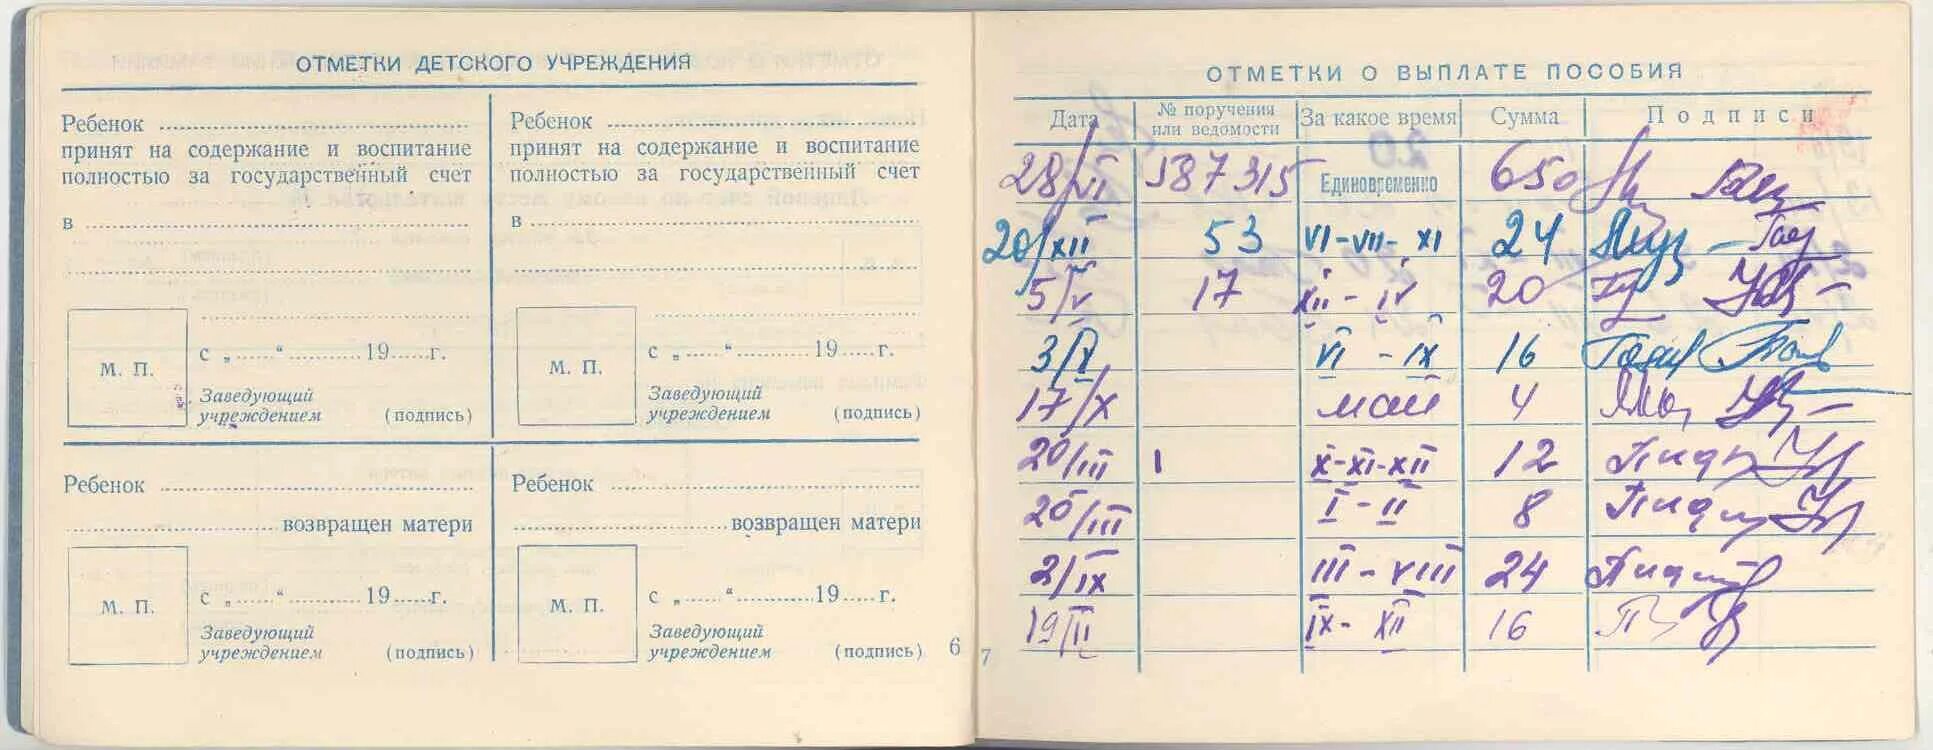 ОТМЕТКИ ДЕТСКОГО УЧРЕЖДЕНИЯ
Ребенок
принят на содержание и воспитание
полностью за государственный счет
в
М. П.
с „ “ 19 г.
Заведующий
учреждением (подпись)
Ребенок
принят на содержание и воспитание
полностью за государственный счет
в
М. П.
с „ “ 19 г.
Заведующий
учреждением (подпись)
Ребенок
возвращен матери
М. П.
с „ “ 19 г.
Заведующий
учреждением (подпись)
Ребенок
возвращен матери
М. П.
с „ “ 19 г.
Заведующий
учреждением (подпись)
6
ОТМЕТКИ О ВЫПЛАТЕ ПОСОБИЯ
Дата № поручения или ведомости За какое время Сумма Подписи
28/VI 587315 Единовременно 650
20/XII 53 VI-VII-XI 24
5/V 17 XII-IV 20
3/X VI-IX 16
17/X май 4
20/III 1 X-XI-XII 12
20/III I-II 8
2/IX III-VIII 24
19/II IX-XII 16
7